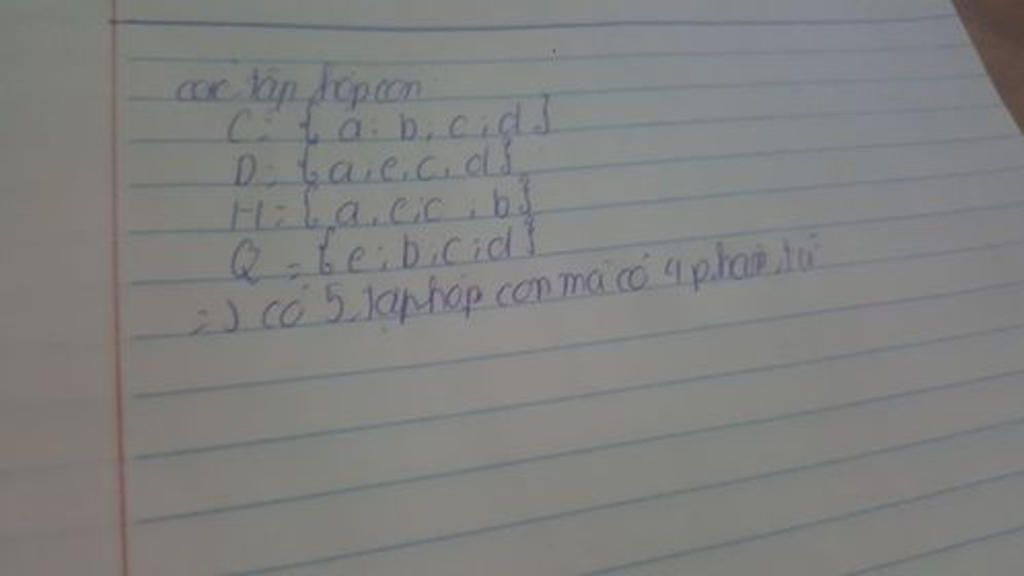 các tập hợp con
C = { a ; b , c , d }
D = { a , e , c , d }
H = { a , e , c , b }
Q = { e ; b , c ; d }
=> có 5 tập hợp con mà có 4 phần tử